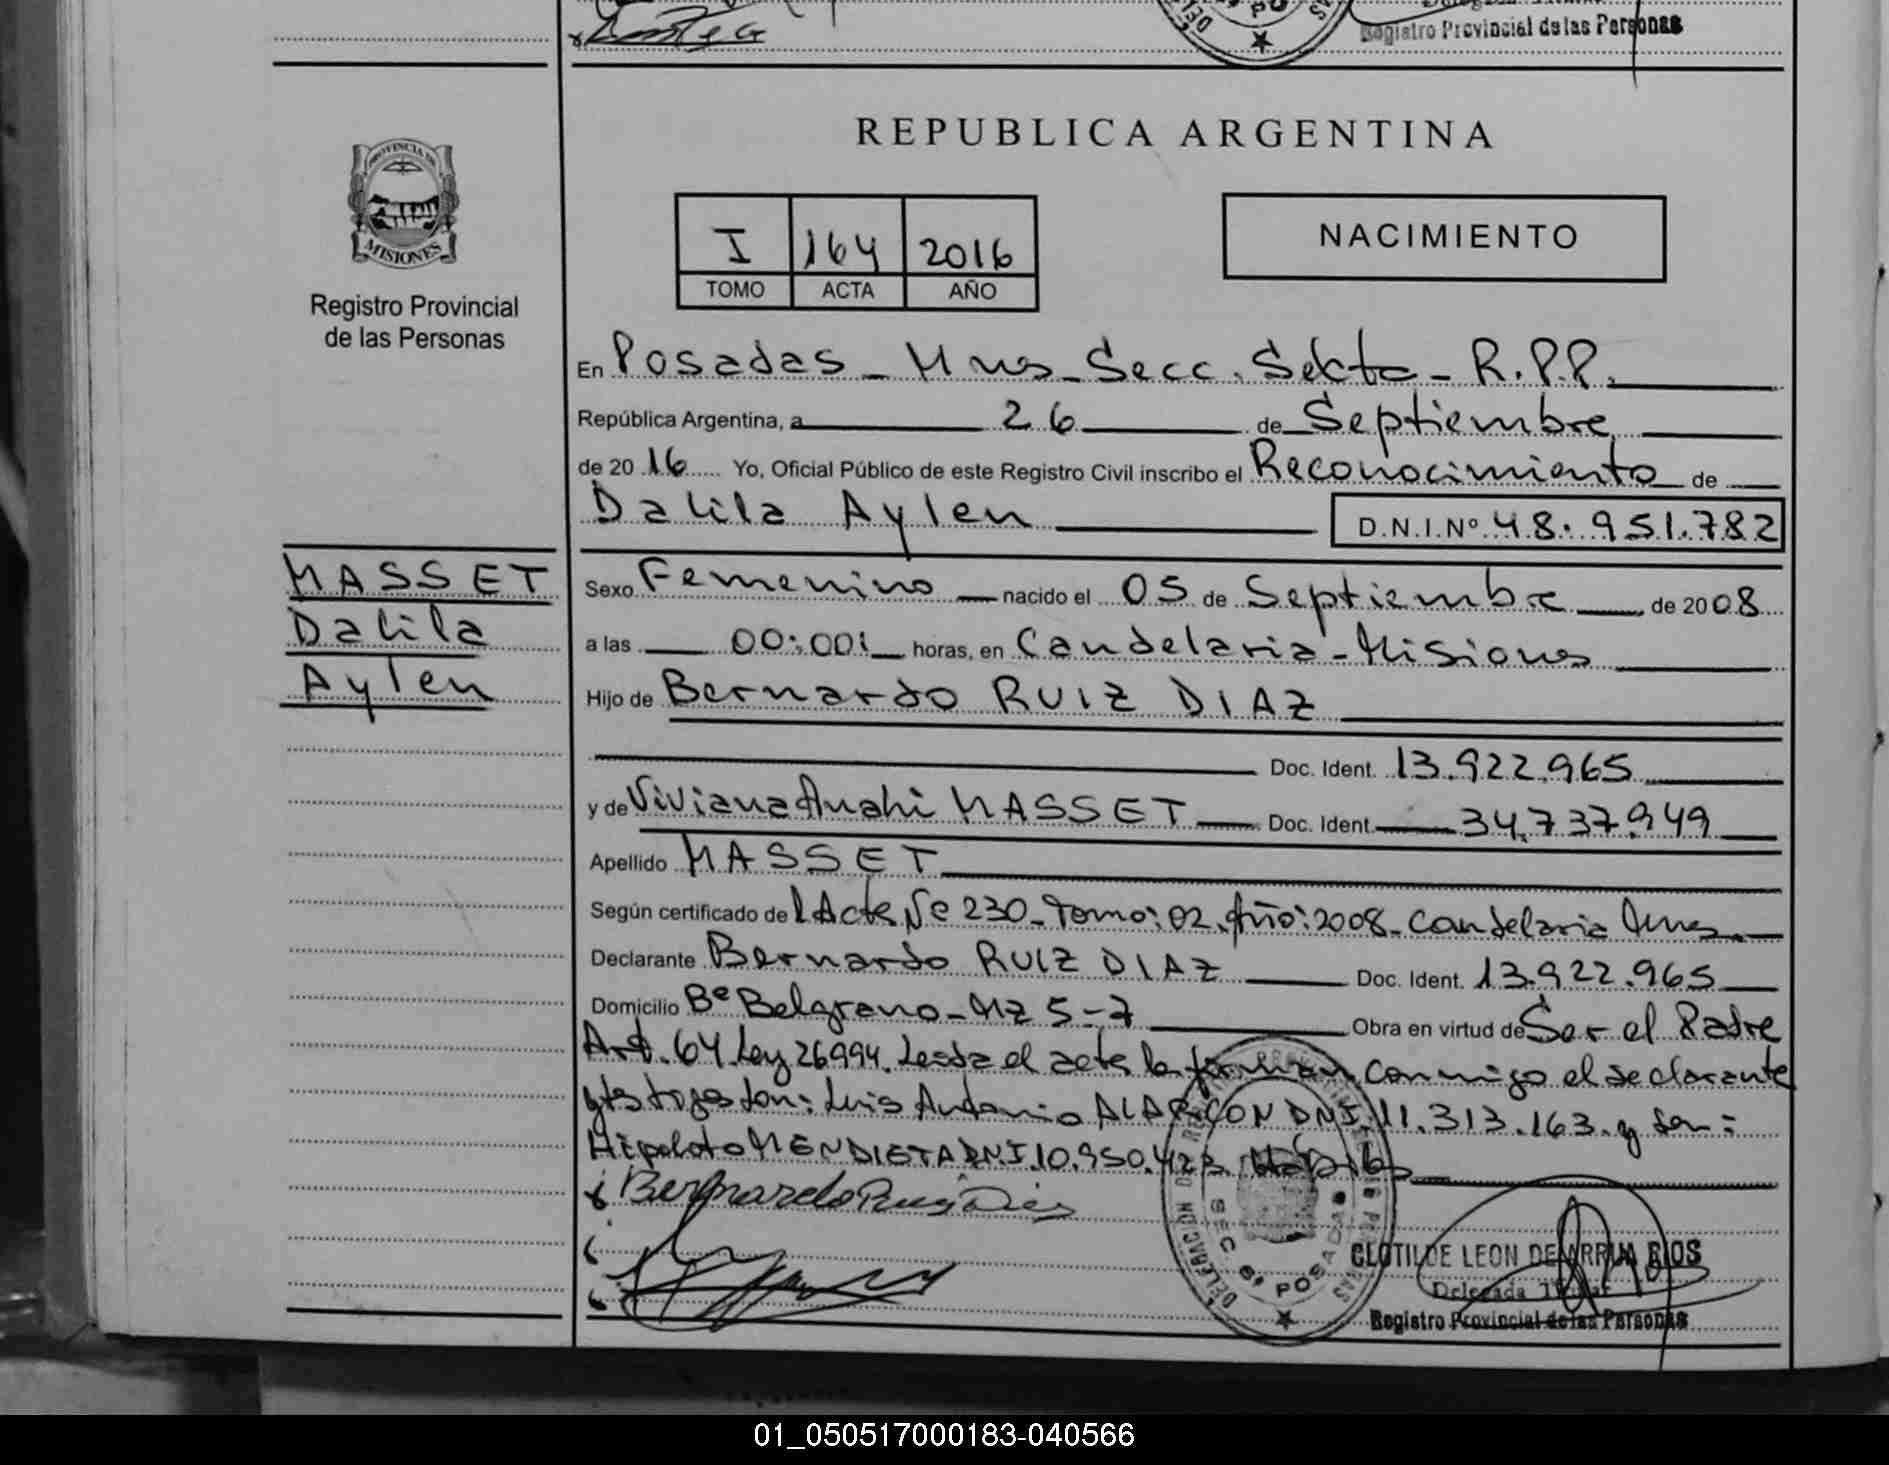 Registro Provincial de las Personas
REPUBLICA ARGENTINA
PROVINCIA DE
MISIONES
Registro Provincial
de las Personas
I 164 2016
TOMO ACTA AÑO
NACIMIENTO
En Posadas - Mnes - Secc. Sexta - R.P.P.
República Argentina, a 26 de Septiembre
de 2016 Yo, Oficial Público de este Registro Civil inscribo el Reconocimiento de
Dalila Aylen D.N.I.Nº 48.951.782
MASSET
Dalila
Aylen
Sexo Femenino nacido el 05 de Septiembre de 2008
a las 00:001 horas, en Candelaria - Misiones
Hijo de Bernardo RUIZ DIAZ
Doc. Ident. 13.922.965
y de Viviana Anahi MASSET Doc. Ident. 34.737.949
Apellido MASSET
Según certificado de l Acta Nº 230 - Tomo: 02. Año: 2008 - Candelaria Mnes.
Declarante Bernardo RUIZ DIAZ Doc. Ident. 13.922.965
Domicilio Bº Belgrano - MZ 5-7 Obra en virtud de Ser el Padre
Art. 64 Ley 26994. Leida el acta la firman conmigo el declarante
y ts tgos son: Luis Antonio ALARCON DNI. 11.313.163. y Son:
Hipolito MENDIETA DNI. 10.950.423.
Bernardo Ruiz Diaz
DELEGACION
SEC 6ª POSADAS
CLOTILDE LEON DE ARRUA RIOS
Delegada Titular
Registro Provincial de las Personas
01_050517000183-040566